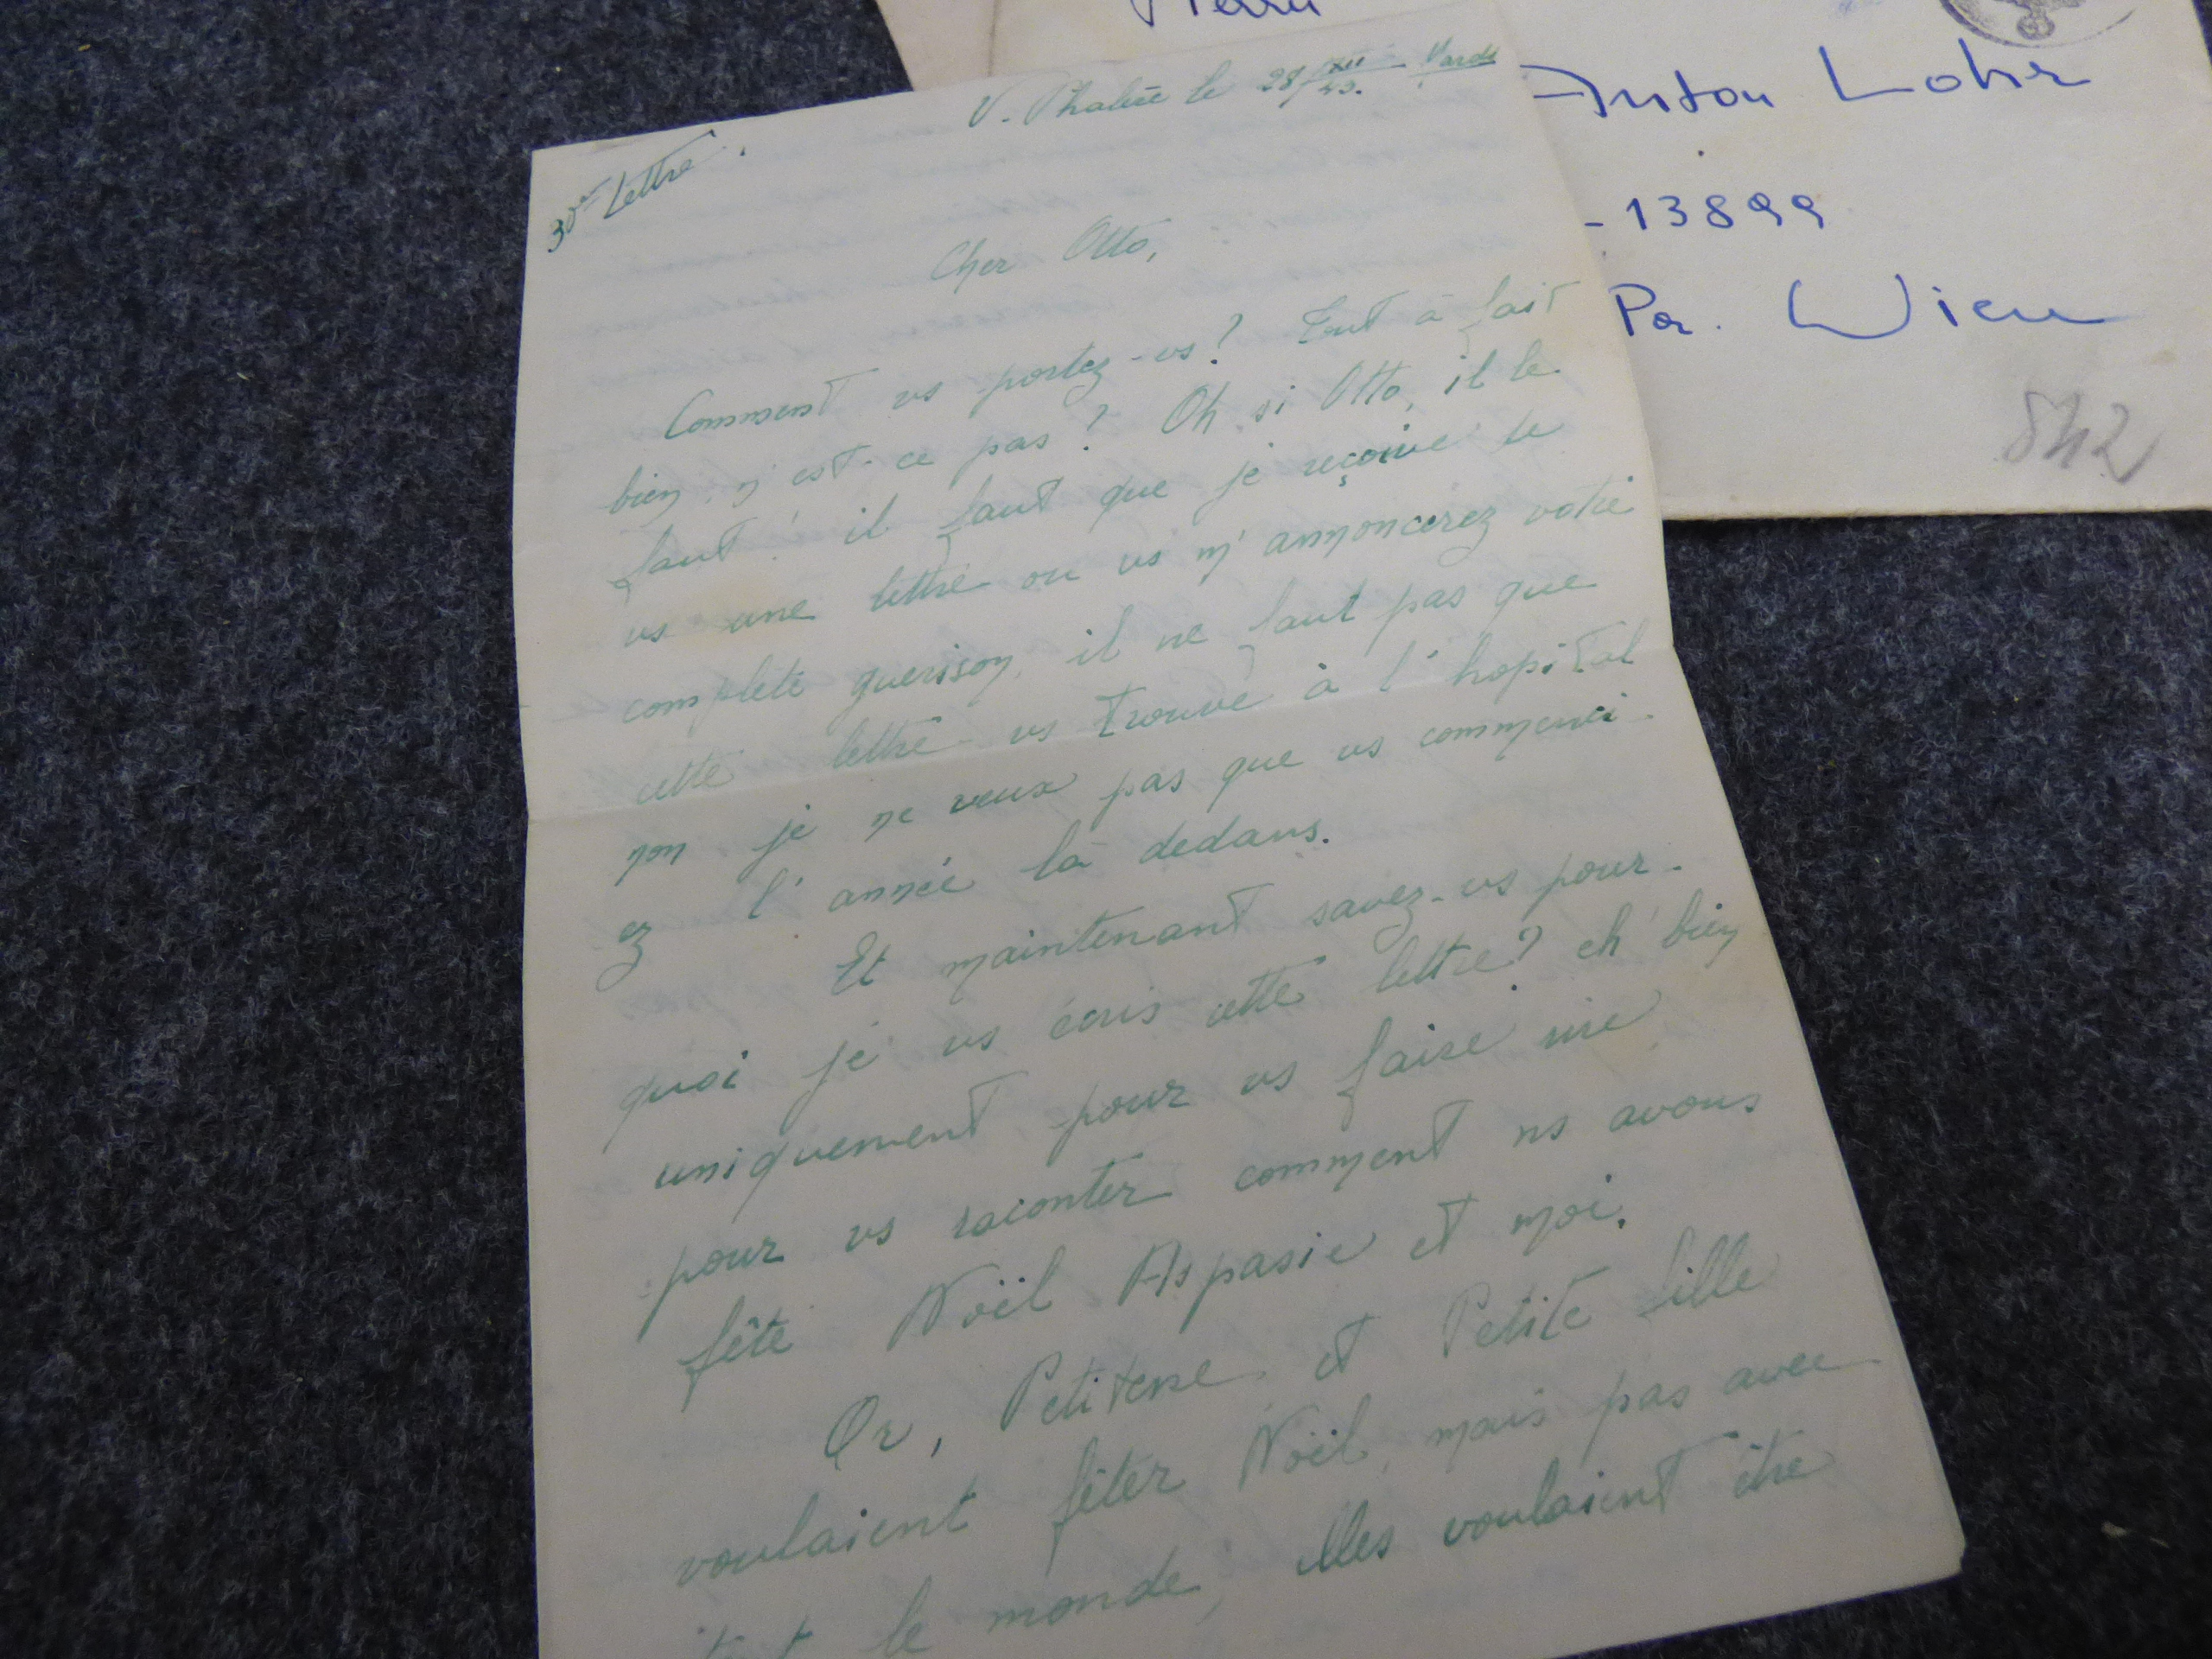 Herrn
Anton Loher
- 13899
Por. Wien
842
V. Phalère le 28/XII 43. Mardi
30me Lettre.
Cher Otto,
Comment vs portez-vs? Tout à fait
bien n'est-ce pas? Oh si Otto, il le
faut! il faut que je reçoive de
vs une lettre ou vs m'annoncerez votre
complete guerison, il ne faut pas que
cette lettre vs trouve à l'hopital
non je ne veux pas que vs commenci-
ez l'année là dedans.
Et maintenant savez-vs pour-
quoi je vs écris cette lettre? eh bien
uniquement pour vs faire rire
pour vs raconter comment ns avons
fêté Noël Aspasie et moi.
Or, et Petite fille
voulaient fêter Noël, mais pas avec
tout le monde, elles voulaient être